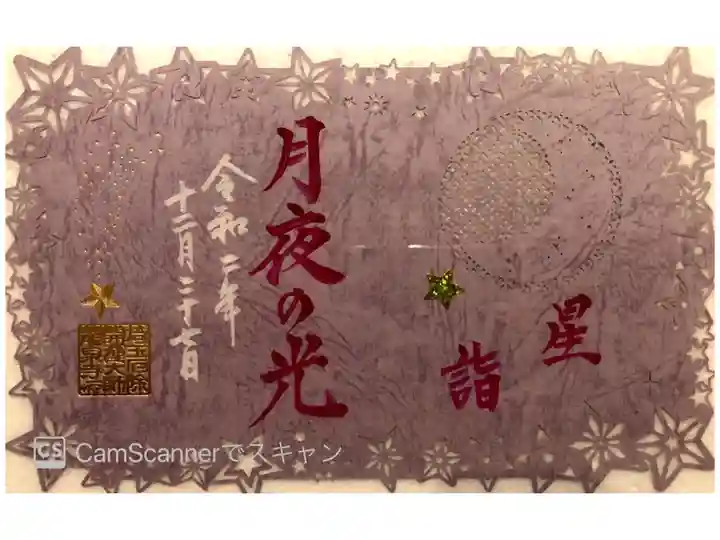 星
詣
月夜の光
令和二年
十二月二十七日
CS CamScannerでスキャン